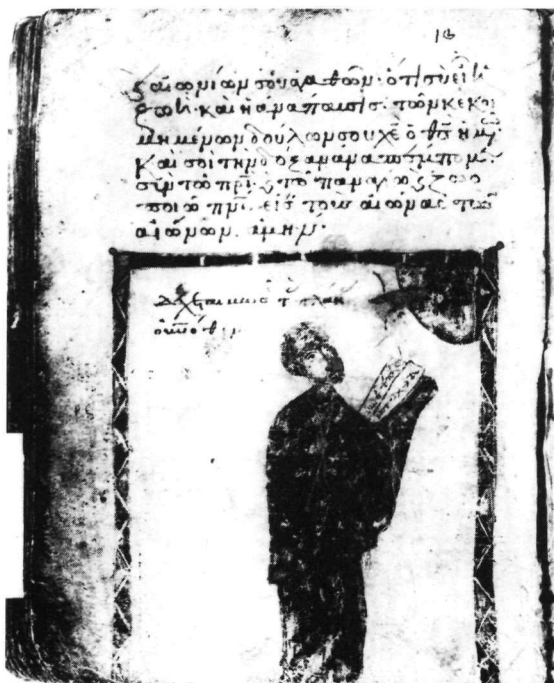 ϛ αἰωνίων σου ἀγαθῶν· ὅτι σὺ εἶ ἡ
ζωὴ· καὶ ἡ ἀνάπαυσις τῶν κεκοι
μημένων δούλων σου χ̅ε̅ ὁ θ̅ς̅ ἡμ
καὶ σοὶ τὴν δόξαν ἀναπέμπομ
σὺν τῶ π̅ρ̅ι̅· ϛ τῶ παναγίω ϛ ζωο
ποιῶ π̅ν̅ι̅· εἰς τοὺς αἰῶνας τῶν
αἰώνων· ἀμήν·